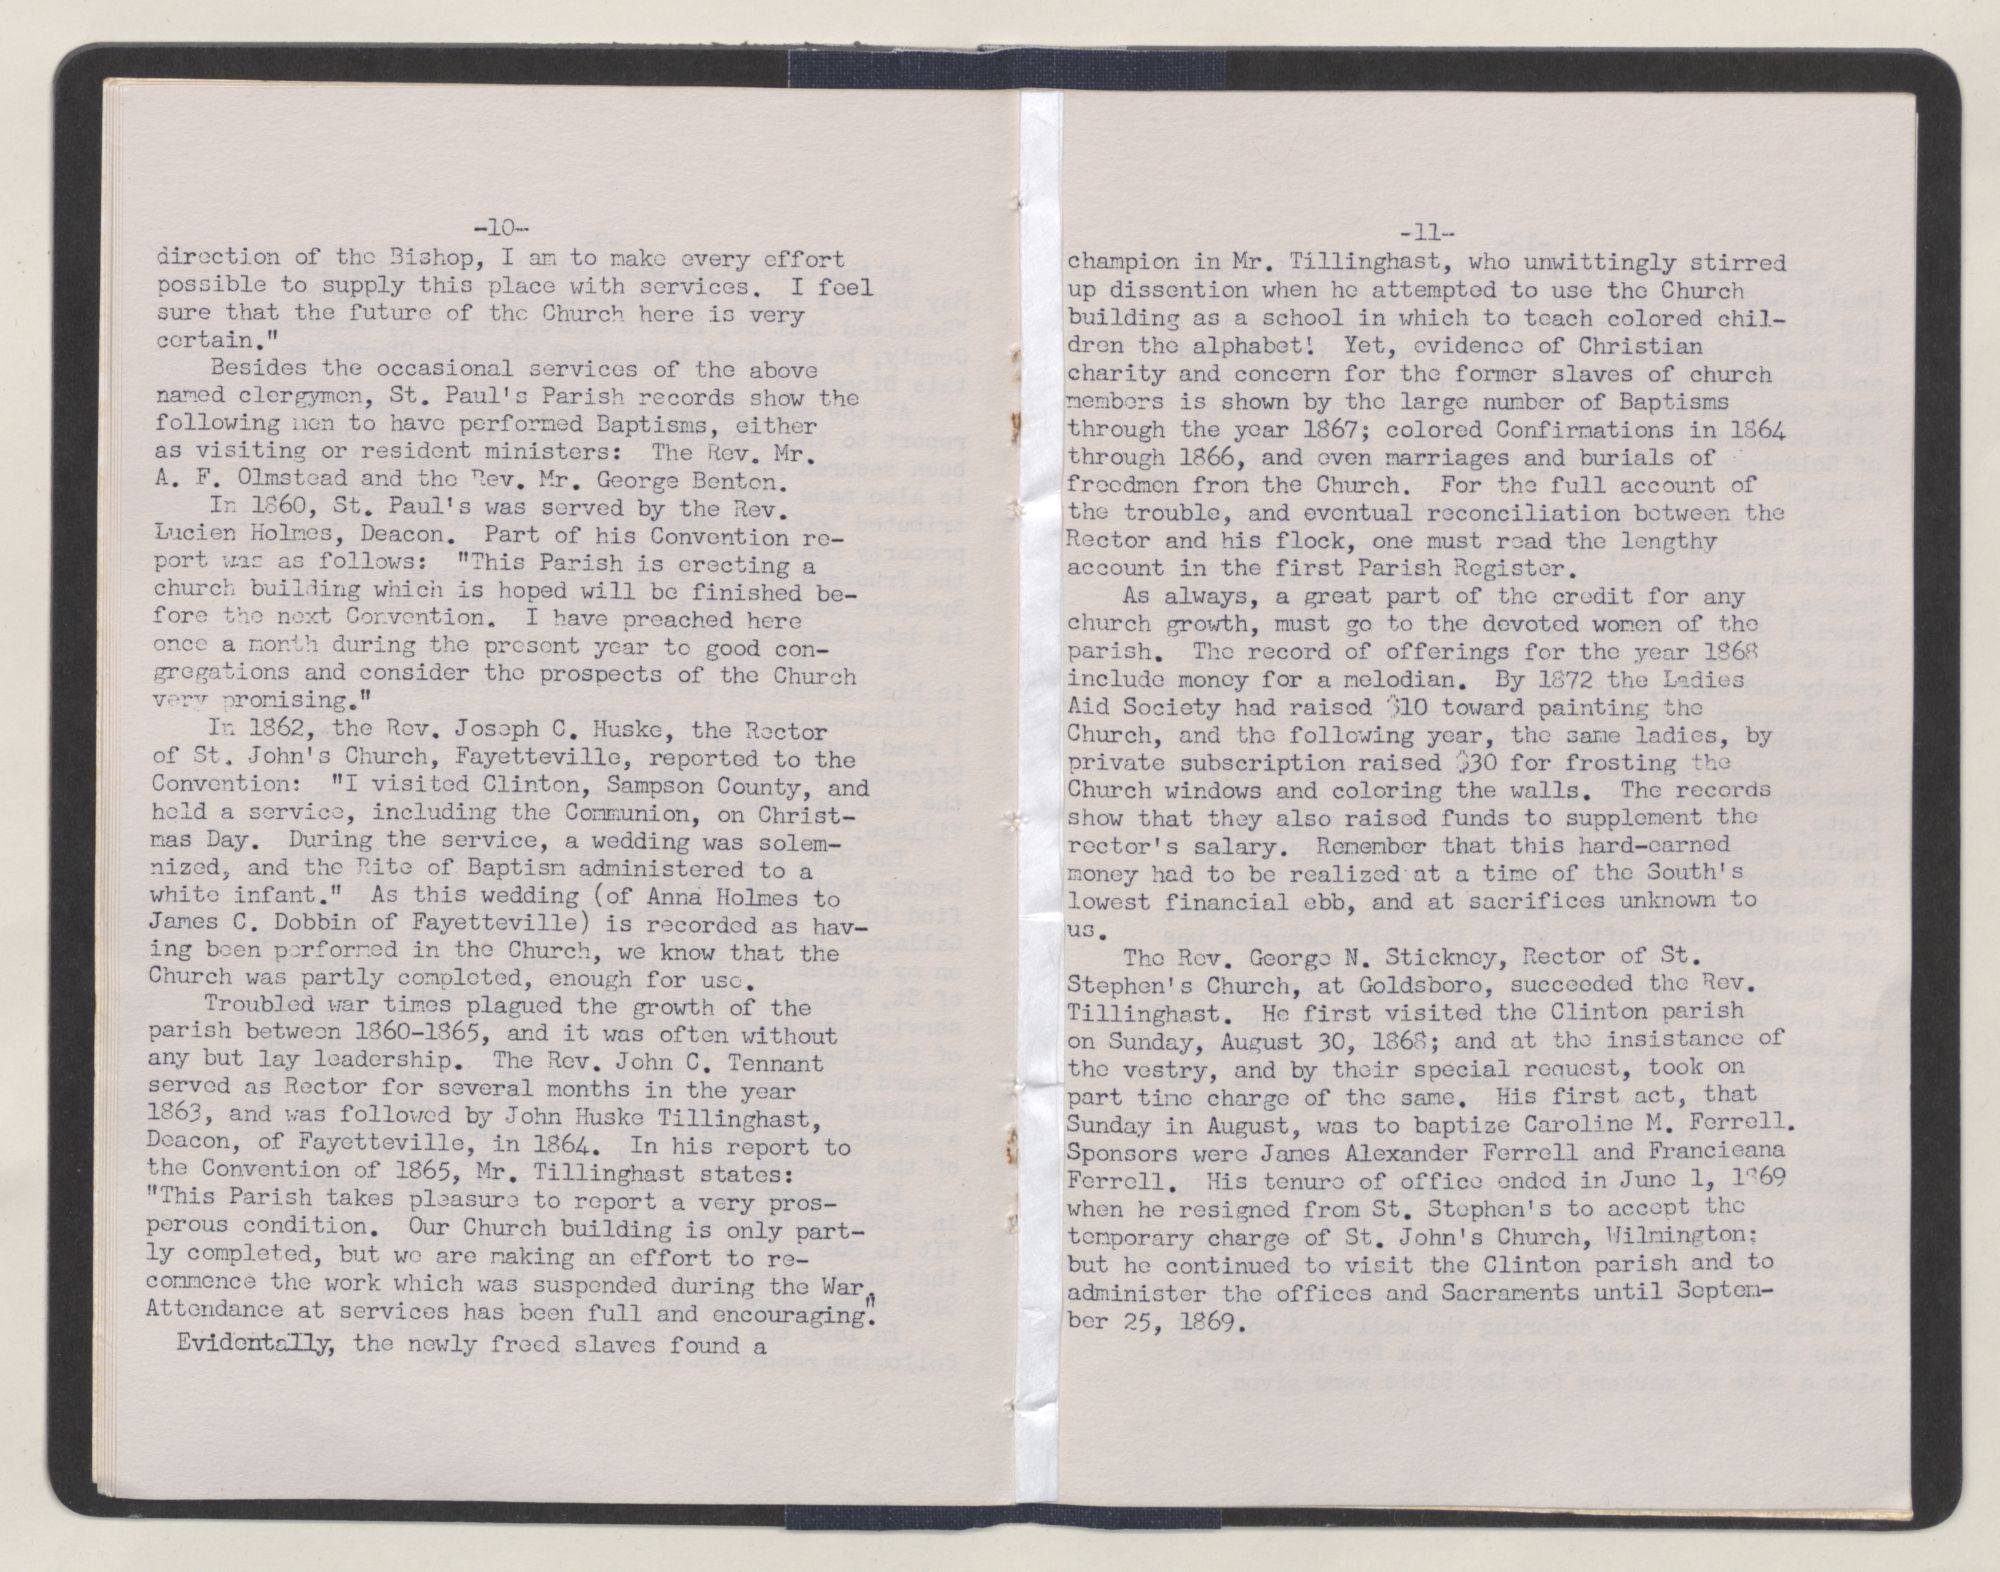 -10-
direction of the Bishop, I am to make every effort
possible to supply this place with services. I feel
sure that the future of the Church here is very
certain."
Besides the occasional services of the above
named clergymen, St. Paul's Parish records show the
following men to have performed Baptisms, either
as visiting or resident ministers: The Rev. Mr.
A. F. Olmstead and the Rev. Mr. George Benton.
In 1860, St. Paul's was served by the Rev.
Lucien Holmes, Deacon. Part of his Convention re-
port was as follows: "This Parish is erecting a
church building which is hoped will be finished be-
fore the next Convention. I have preached here
once a month during the present year to good con-
gregations and consider the prospects of the Church
very promising."
In 1862, the Rev. Joseph C. Huske, the Rector
of St. John's Church, Fayetteville, reported to the
Convention: "I visited Clinton, Sampson County, and
held a service, including the Communion, on Christ-
mas Day. During the service, a wedding was solem-
nized, and the Rite of Baptism administered to a
white infant." As this wedding (of Anna Holmes to
James C. Dobbin of Fayetteville) is recorded as hav-
ing been performed in the Church, we know that the
Church was partly completed, enough for use.
Troubled war times plagued the growth of the
parish between 1860-1865, and it was often without
any but lay leadership. The Rev. John C. Tennant
served as Rector for several months in the year
1863, and was followed by John Huske Tillinghast,
Deacon, of Fayetteville, in 1864. In his report to
the Convention of 1865, Mr. Tillinghast states:
"This Parish takes pleasure to report a very pros-
perous condition. Our Church building is only part-
ly completed, but we are making an effort to re-
commence the work which was suspended during the War.
Attendance at services has been full and encouraging."
Evidentally, the newly freed slaves found a
-11-
champion in Mr. Tillinghast, who unwittingly stirred
up dissention when he attempted to use the Church
building as a school in which to teach colored chil-
dren the alphabet! Yet, evidence of Christian
charity and concern for the former slaves of church
members is shown by the large number of Baptisms
through the year 1867; colored Confirmations in 1864
through 1866, and even marriages and burials of
freedmen from the Church. For the full account of
the trouble, and eventual reconciliation between the
Rector and his flock, one must read the lengthy
account in the first Parish Register.
As always, a great part of the credit for any
church growth, must go to the devoted women of the
parish. The record of offerings for the year 1868
include money for a melodian. By 1872 the Ladies
Aid Society had raised $10 toward painting the
Church, and the following year, the same ladies, by
private subscription raised $30 for frosting the
Church windows and coloring the walls. The records
show that they also raised funds to supplement the
rector's salary. Remember that this hard-earned
money had to be realized at a time of the South's
lowest financial ebb, and at sacrifices unknown to
us.
The Rev. George N. Stickney, Rector of St.
Stephen's Church, at Goldsboro, succeeded the Rev.
Tillinghast. He first visited the Clinton parish
on Sunday, August 30, 1868; and at the insistance of
the vestry, and by their special request, took on
part time charge of the same. His first act, that
Sunday in August, was to baptize Caroline M. Ferrell.
Sponsors were James Alexander Ferrell and Francieana
Ferrell. His tenure of office ended in June 1, 1869
when he resigned from St. Stephen's to accept the
temporary charge of St. John's Church, Wilmington;
but he continued to visit the Clinton parish and to
administer the offices and Sacraments until Septem-
ber 25, 1869.